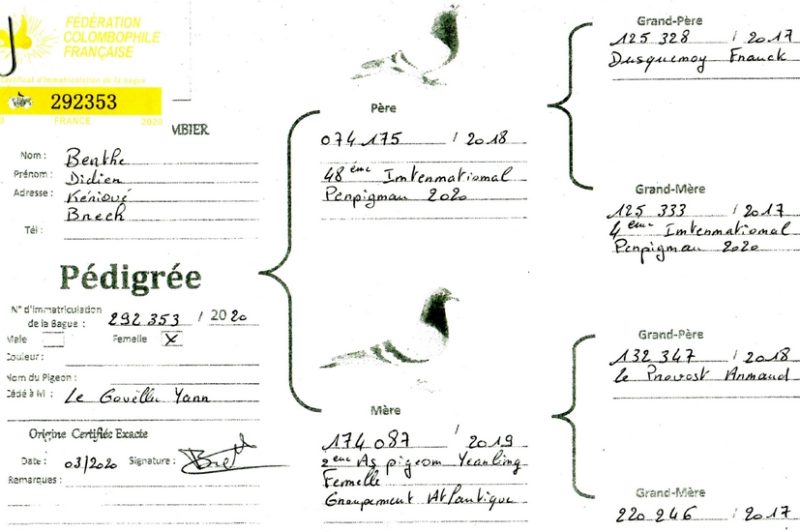 FÉDÉRATION
COLOMBOPHILE
FRANÇAISE
Certificat d'immatriculation de la bague
292353
FRANCE 2020
Nom : Benthe
Prénom : Didien
Adresse : Kéniové
Brech
Tél :
Pédigrée
N° d'immatriculation
de la Bague : 292 353 / 2020
Male Femelle X
Couleur :
Nom du Pigeon :
Cédé à M : Le Govëllu Yann
Origine Certifiée Exacte
Date : 03/2020 Signature :
Remarques :
Père
074 175 / 2018
48 ème Imtenmational
Penpigman 2020
Mère
174 087 / 2019
2 ème As pigeom Yeanling
Femelle
Gnoupement Atlantique
Grand-Père
125 328 / 2017
Dusquemoy Franck
Grand-Mère
125 333 / 2017
4 ème Imtenmational
Penpigman 2020
Grand-Père
132 347 / 2018
le Provost Anmaud
Grand-Mère
220 246 / 2017